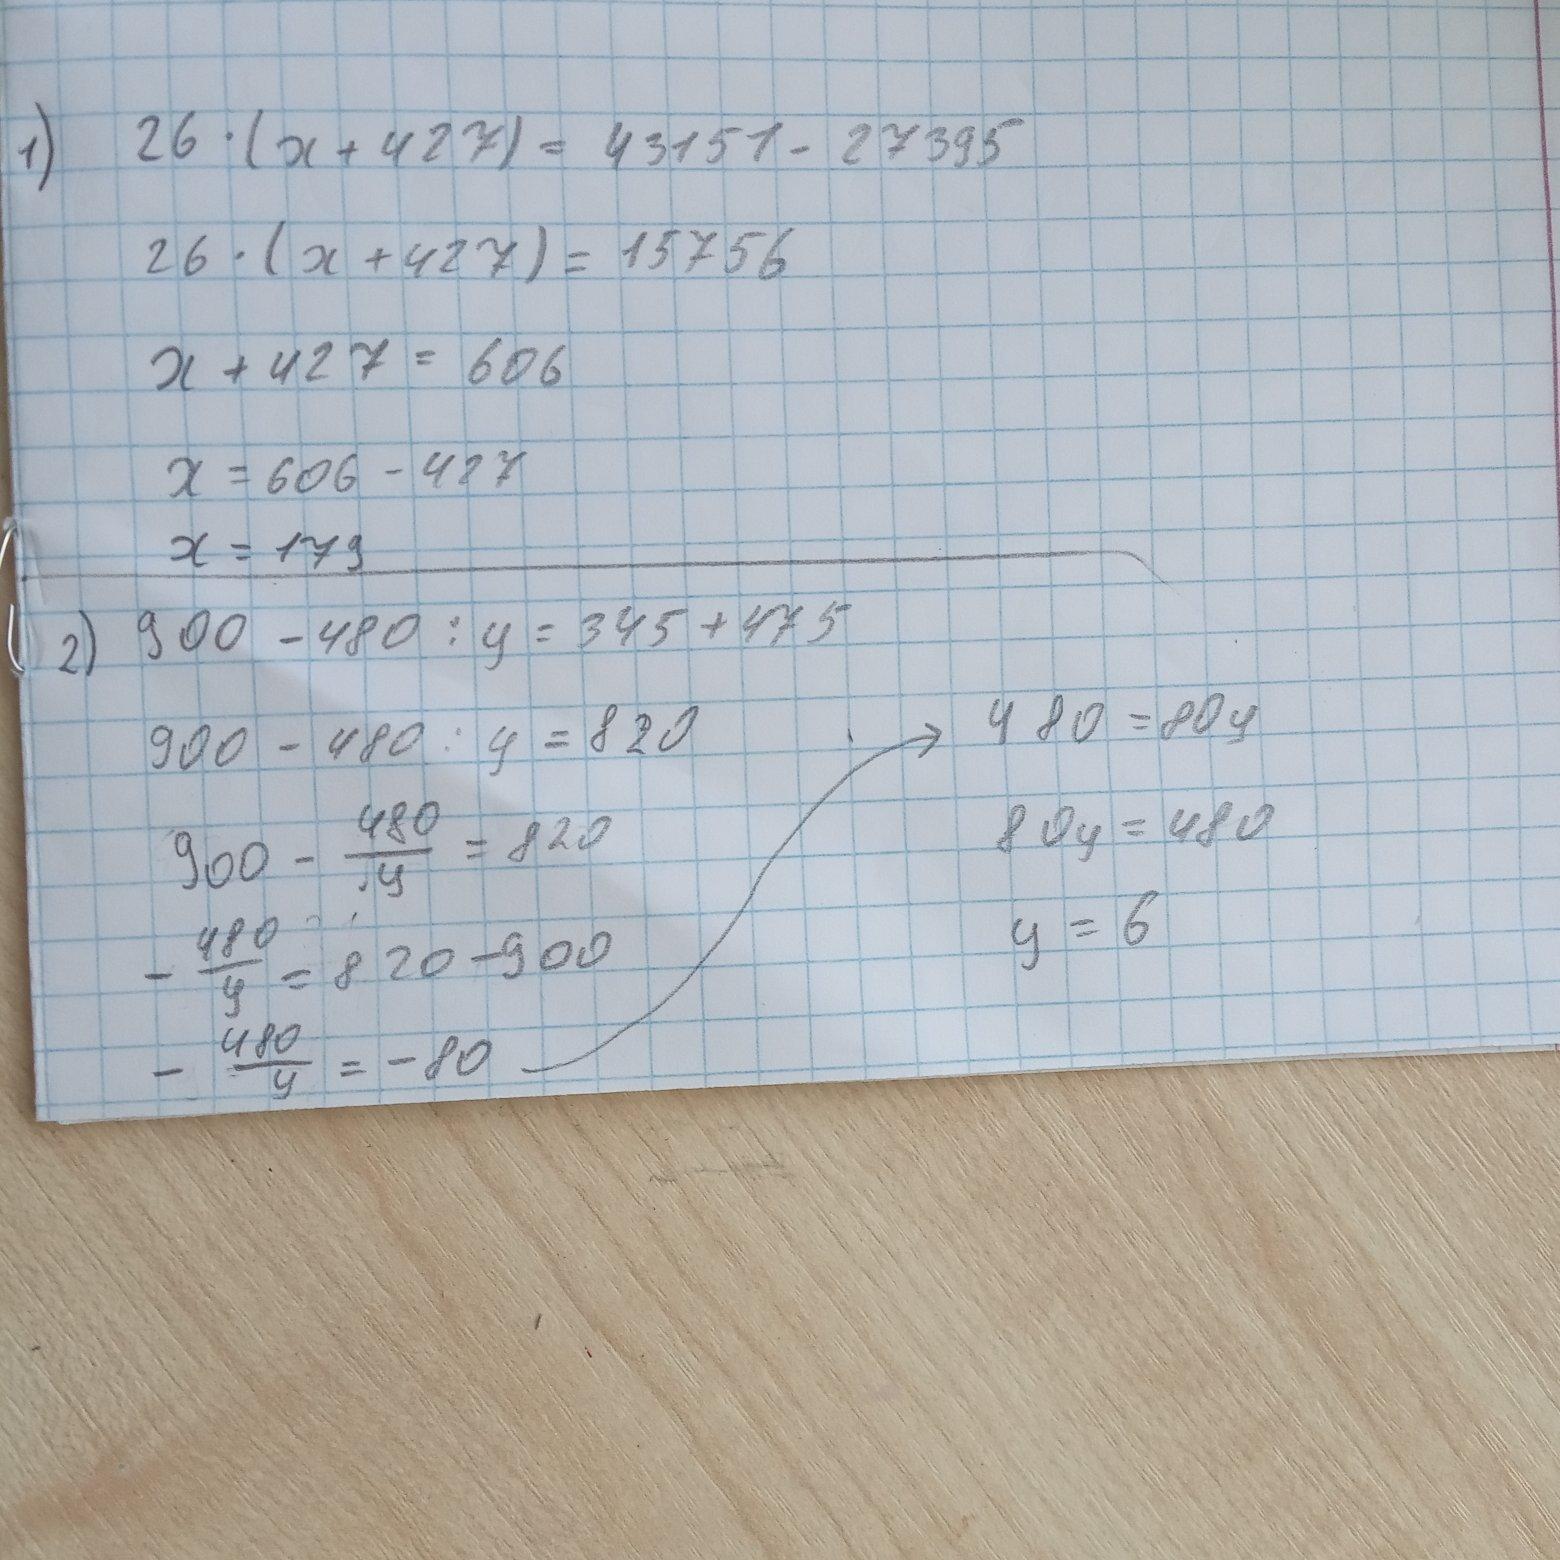 1) 26 · (x + 427) = 43151 - 27395
26 · (x + 427) = 15756
x + 427 = 606
x = 606 - 427
x = 179
2) 900 - 480 : y = 345 + 475
900 - 480 : y = 820
900 - 480/y = 820
- 480/y = 820 - 900
- 480/y = -80 →
480 = 80y
80y = 480
y = 6